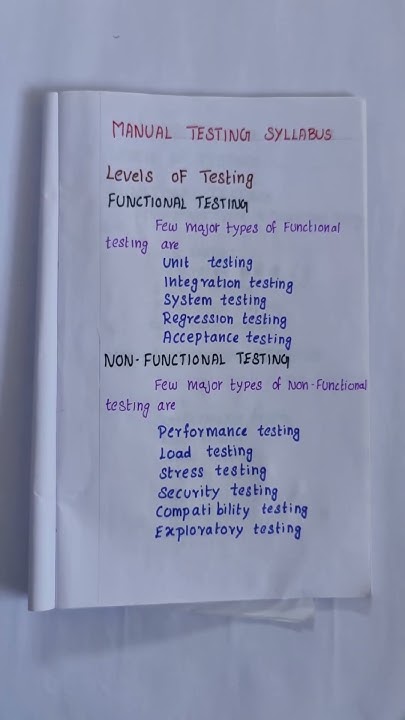 MANUAL TESTING SYLLABUS
Levels OF Testing
FUNCTIONAL TESTING
Few major types of Functional
testing are
Unit testing
Integration testing
System testing
Regression testing
Acceptance testing
NON-FUNCTIONAL TESTING
Few major types of Non-Functional
testing are
Performance testing
Load testing
Stress testing
Security testing
Compatibility testing
Exploratory testing